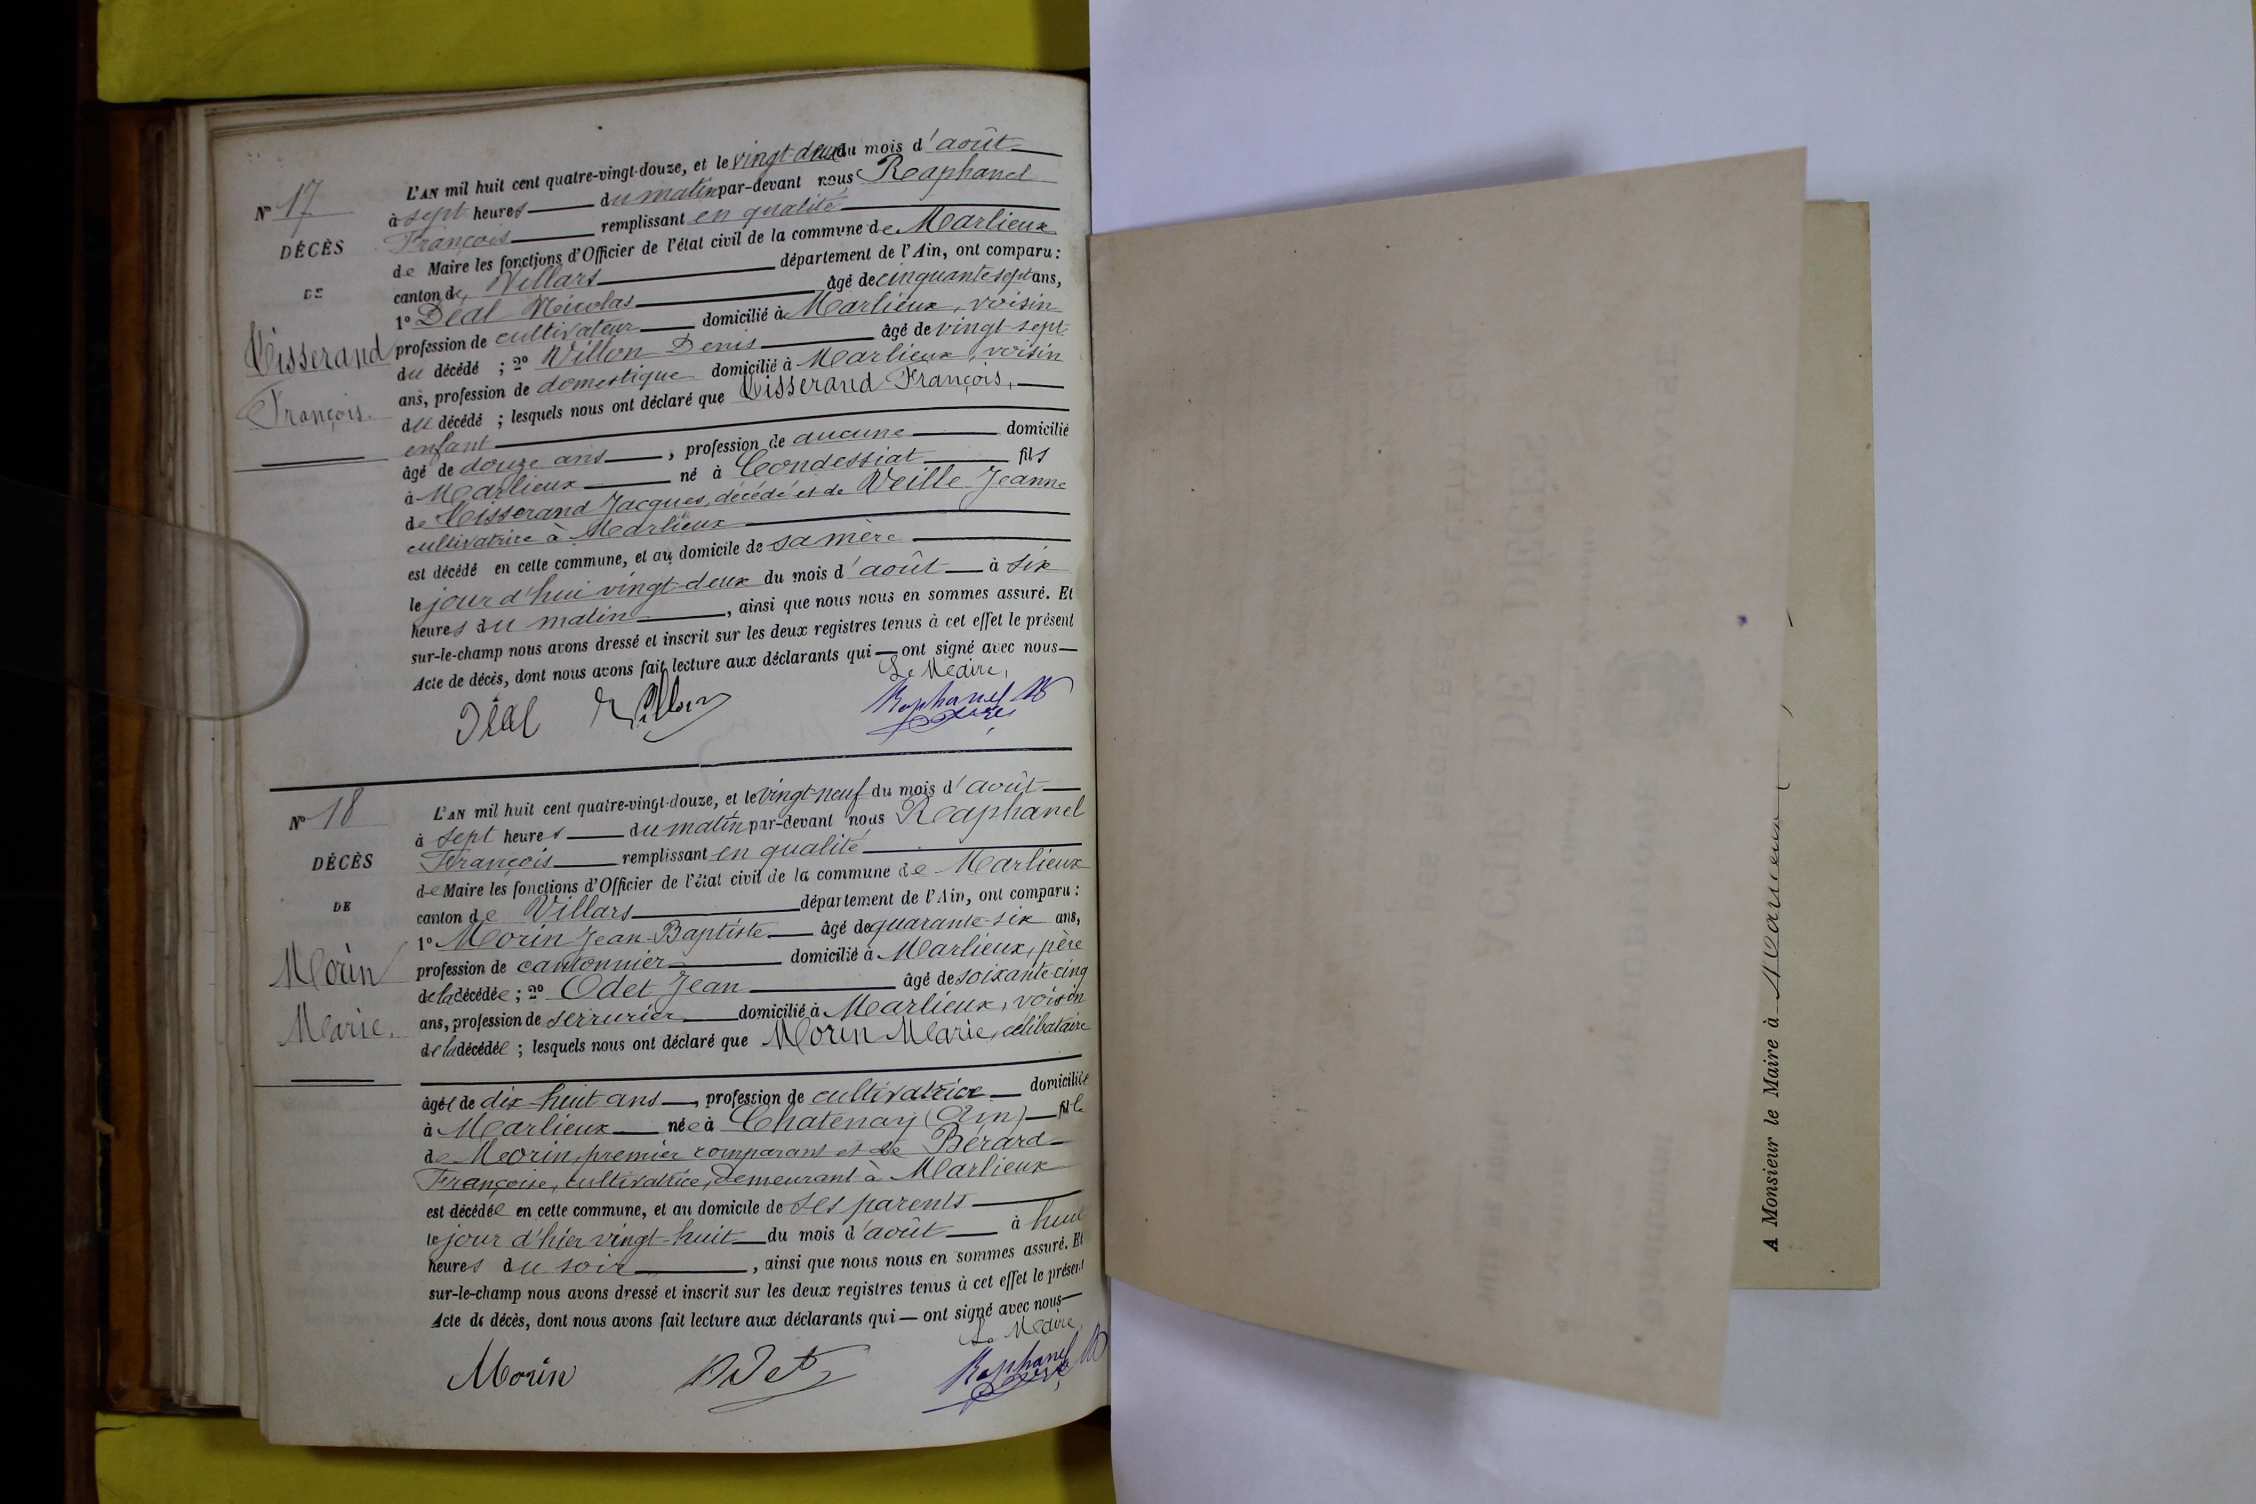 N° 17
DÉCÈS
DE
Tisserand
François.
L'AN mil huit cent quatre-vingt-douze, et le vingt deux du mois d'août
à sept heures du matin par-devant nous Raphanel
François remplissant en qualité
de Maire les fonctions d'Officier de l'état civil de la commune de Marlieux
canton de Villars département de l'Ain, ont comparu :
1° Déal Nicolas âgé de cinquante sept ans,
profession de cultivateur domicilié à Marlieux, voisin
du décédé ; 2° Villon Denis âgé de vingt-sept
ans, profession de domestique domicilié à Marlieux, voisin
du décédé ; lesquels nous ont déclaré que Tisserand François,
enfant
âgé de douze ans, profession de aucune domicilié
à Marlieux né à Condessiat fils
de Tisserand Jacques, décédé et de Veille Jeanne
cultivatrice à Marlieux
est décédé en cette commune, et au domicile de sa mère
le jour d'hui vingt-deux du mois d'août à six
heures du matin, ainsi que nous nous en sommes assuré. Et
sur-le-champ nous avons dressé et inscrit sur les deux registres tenus à cet effet le présent
Acte de décès, dont nous avons fait lecture aux déclarants qui — ont signé avec nous —
Le Maire,
Déal Villon Raphanel
N° 18
DÉCÈS
DE
Morin
Marie.
L'AN mil huit cent quatre-vingt-douze, et le vingt-neuf du mois d'août
à sept heures du matin par-devant nous Raphanel
François remplissant en qualité
de Maire les fonctions d'Officier de l'état civil de la commune de Marlieux
canton de Villars département de l'Ain, ont comparu :
1° Morin Jean-Baptiste âgé de quarante-six ans,
profession de cantonnier domicilié à Marlieux, père
de la décédée ; 2° Odet Jean âgé de soixante-cinq
ans, profession de serrurier domicilié à Marlieux, voisin
de la décédée ; lesquels nous ont déclaré que Morin Marie, célibataire
âgée de dix-huit ans, profession de cultivatrice domiciliée
à Marlieux née à Chatenay (Ain) fille
de Morin, premier comparant et de Bérard
Françoise, cultivatrice, demeurant à Marlieux
est décédée en cette commune, et au domicile de ses parents
le jour d'hier vingt-huit du mois d'août à huit
heures du soir, ainsi que nous nous en sommes assuré. Et
sur-le-champ nous avons dressé et inscrit sur les deux registres tenus à cet effet le présent
Acte de décès, dont nous avons fait lecture aux déclarants qui — ont signé avec nous —
Le Maire,
Morin Odet Raphanel
A Monsieur le Maire à Marlieux